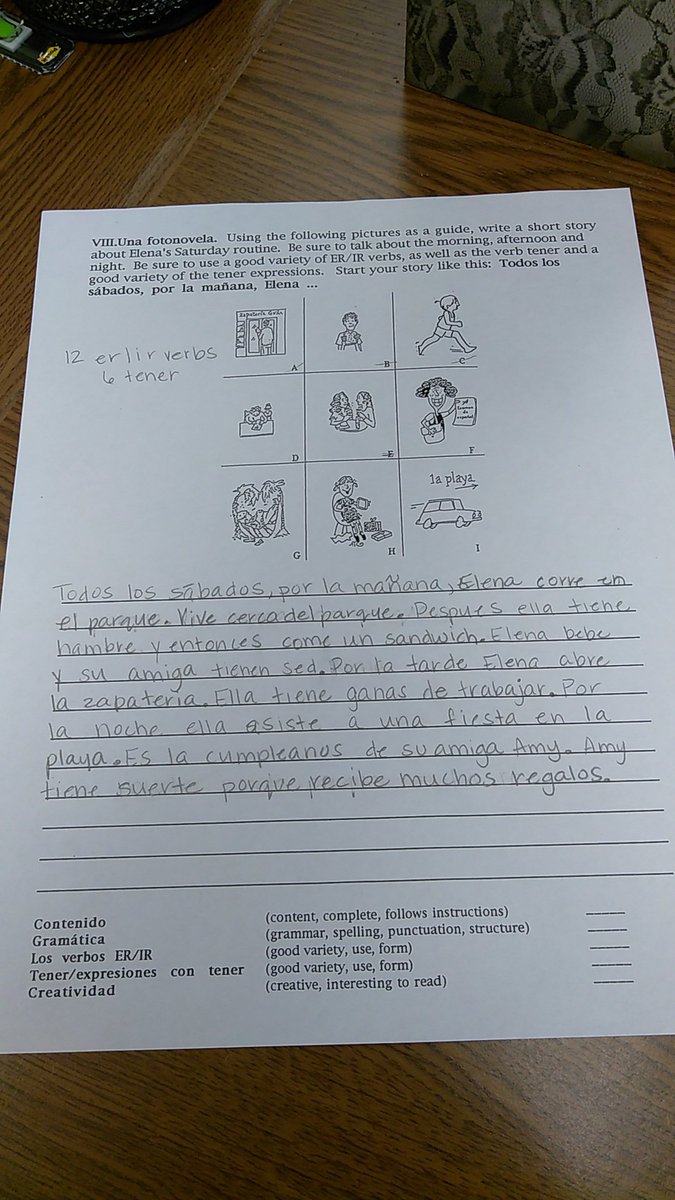 VIII.Una fotonovela. Using the following pictures as a guide, write a short story
about Elena's Saturday routine. Be sure to talk about the morning, afternoon and
night. Be sure to use a good variety of ER/IR verbs, as well as the verb tener and a
good variety of the tener expressions. Start your story like this: Todos los
sábados, por la mañana, Elena ...
12 er/ir verbs
6 tener
Zapatería
A
B
C
D
E
F
Examen de español
la playa
G
H
I
Todos los sábados, por la mañana, Elena corre en
el parque. Vive cerca del parque. Despues ella tiene
hambre y entonces come un sandwich. Elena bebe
y su amiga tienen sed. Por la tarde Elena abre
la zapatería. Ella tiene ganas de trabajar. Por
la noche ella asiste a una fiesta en la
playa. Es la cumpleanos de su amiga Amy. Amy
tiene suerte porque recibe muchos regalos.
Contenido (content, complete, follows instructions)
Gramática (grammar, spelling, punctuation, structure)
Los verbos ER/IR (good variety, use, form)
Tener/expresiones con tener (good variety, use, form)
Creatividad (creative, interesting to read)